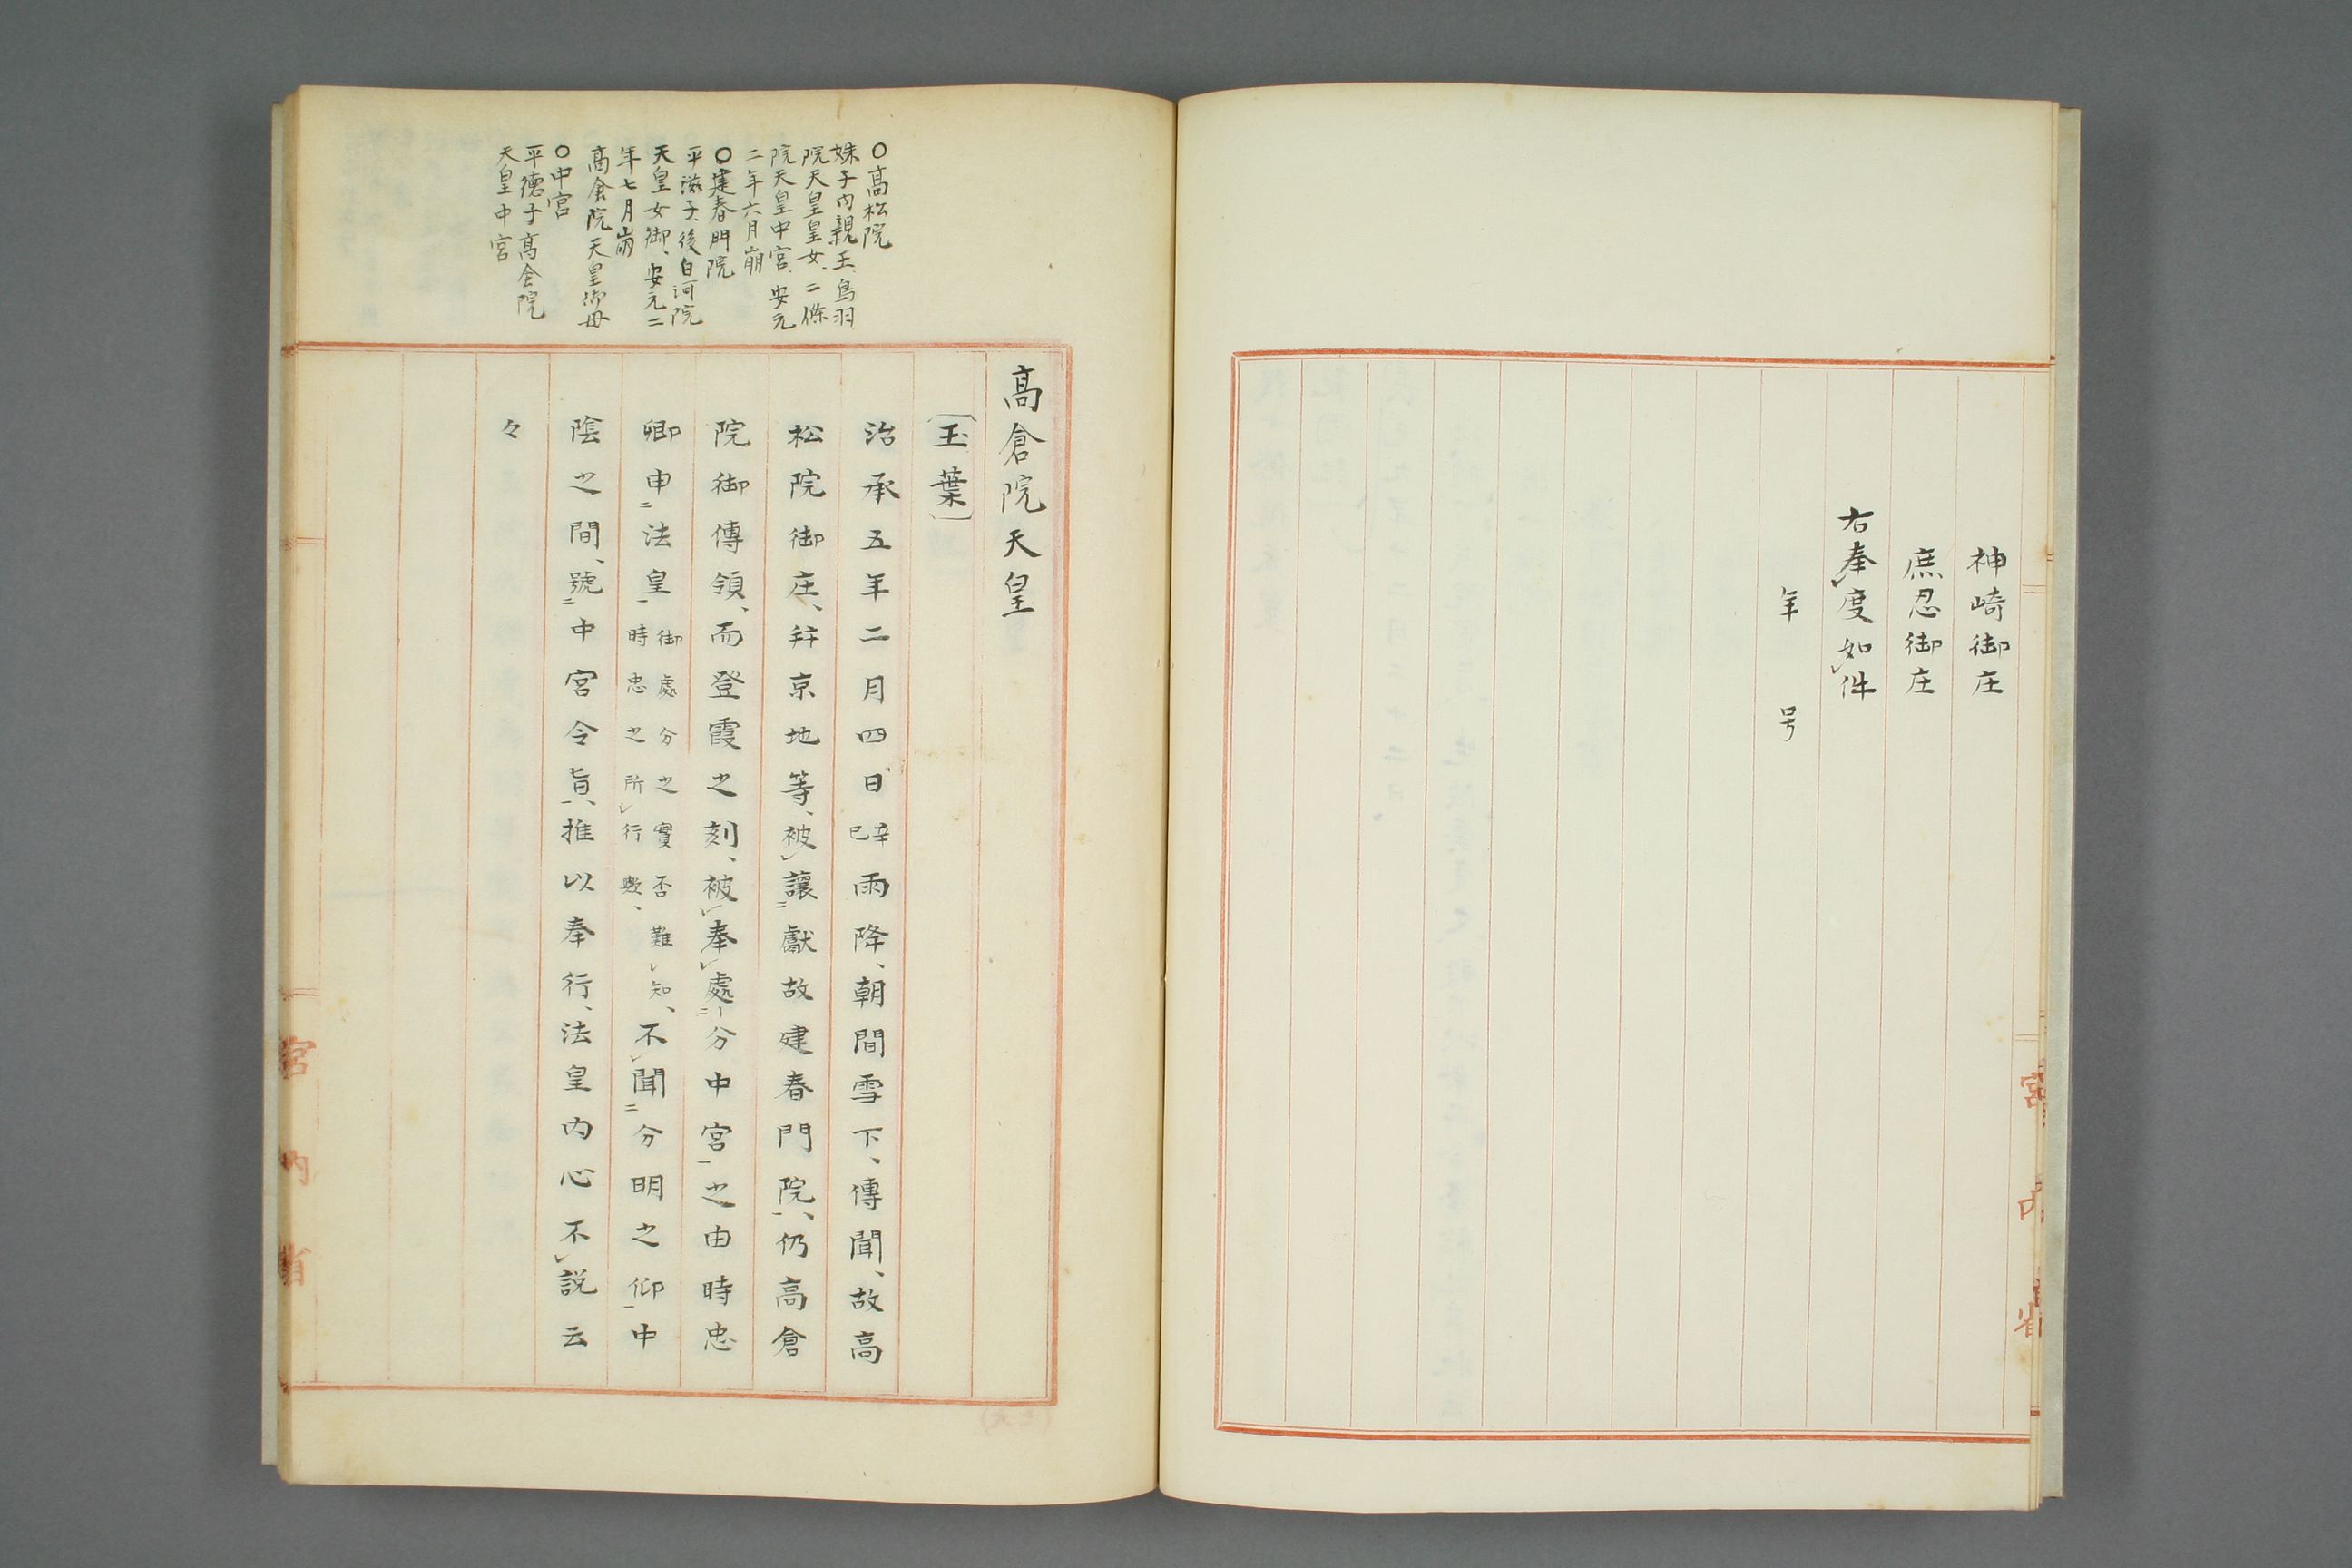 神崎御庄
庶忍御庄
右奉度如件
年　号
宮内省
○高松院
姝子内親王、鳥羽
院天皇皇女、二條
院天皇中宮、安元
二年六月崩
○建春門院
平滋子、後白河院
天皇女御、安元二
年七月崩
高倉院天皇御母
○中宮
平徳子高倉院
天皇中宮
高倉院天皇
〔玉葉〕
治承五年二月四日辛巳雨降、朝間雪下、傳聞、故高
松院御庄、幷京地等、被讓二獻故建春門院一、仍高倉
院御傳領、而登霞之刻、被奉處二分中宮一之由時忠
卿申二法皇一御處分之實否難知、時忠之所行歟、不聞二分明之仰一中
陰之間、號二中宮令旨一、推以奉行、法皇内心不説云
々
宮内省